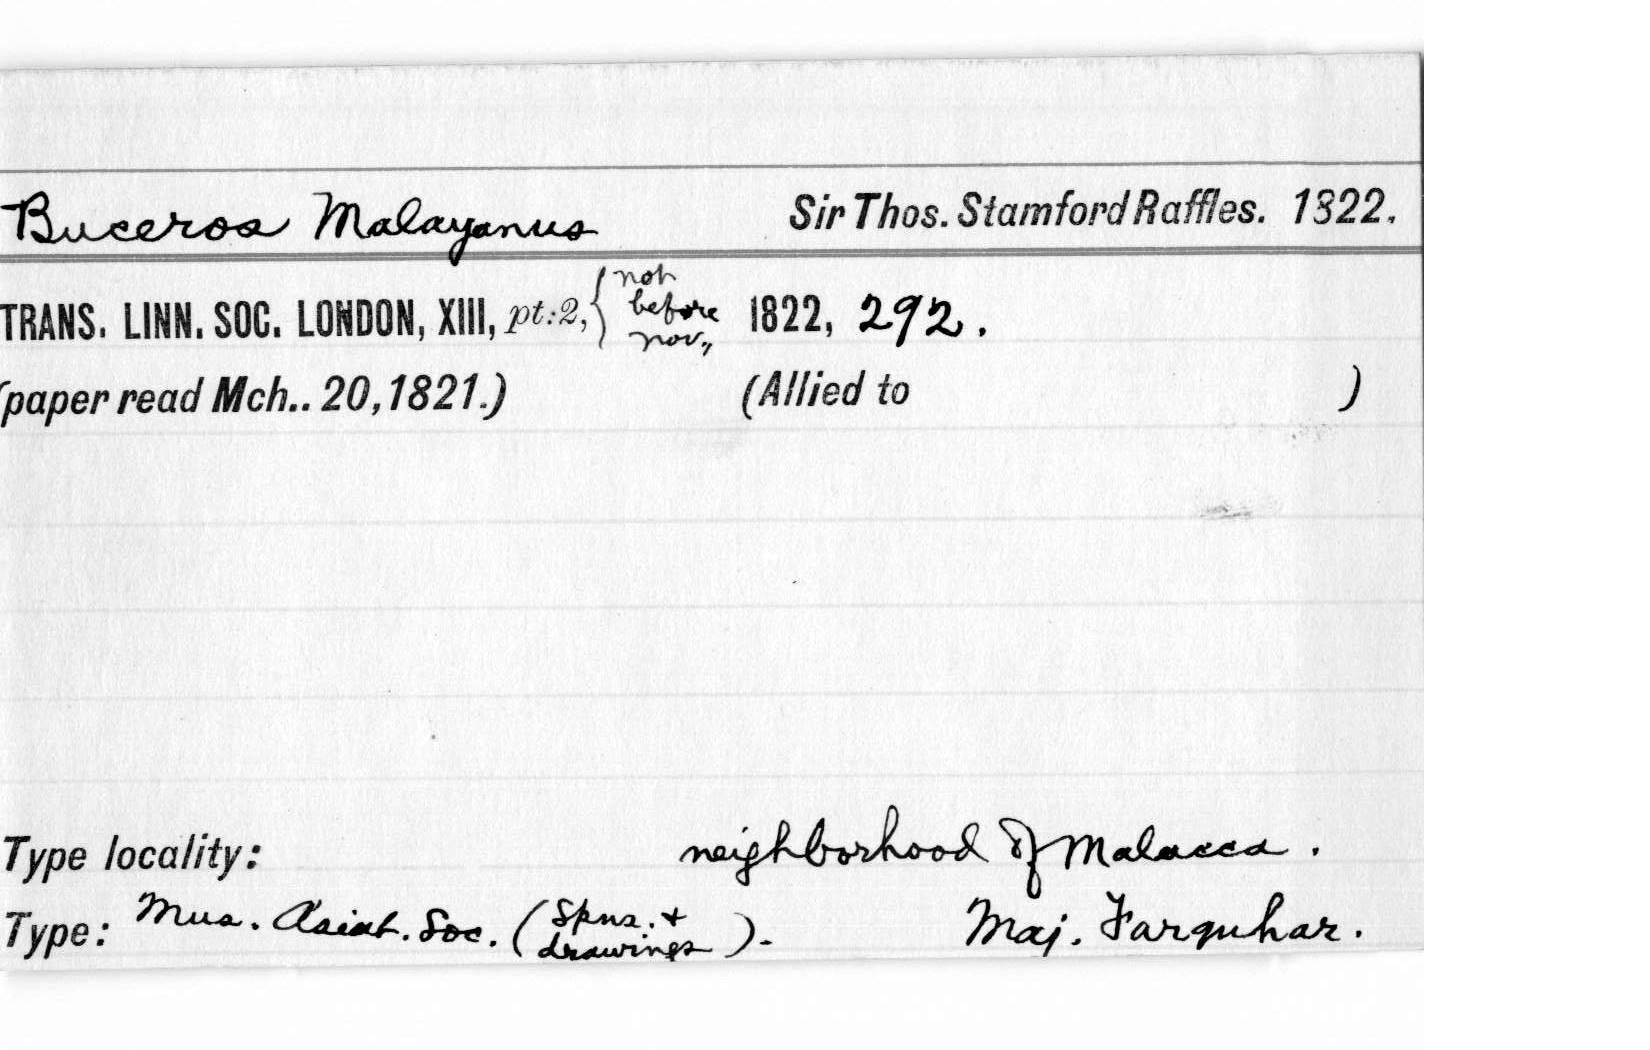 Buceros Malayanus Sir Thos. Stamford Raffles. 1822.
TRANS. LINN. SOC. LONDON, XIII, pt:2, { not before Nov., 1822, 292.
(paper read Mch.. 20,1821.) (Allied to )
Type locality: neighborhood of Malacca.
Type: Mus. Asiat. Soc. (Spns. + drawings). Maj. Farquhar.